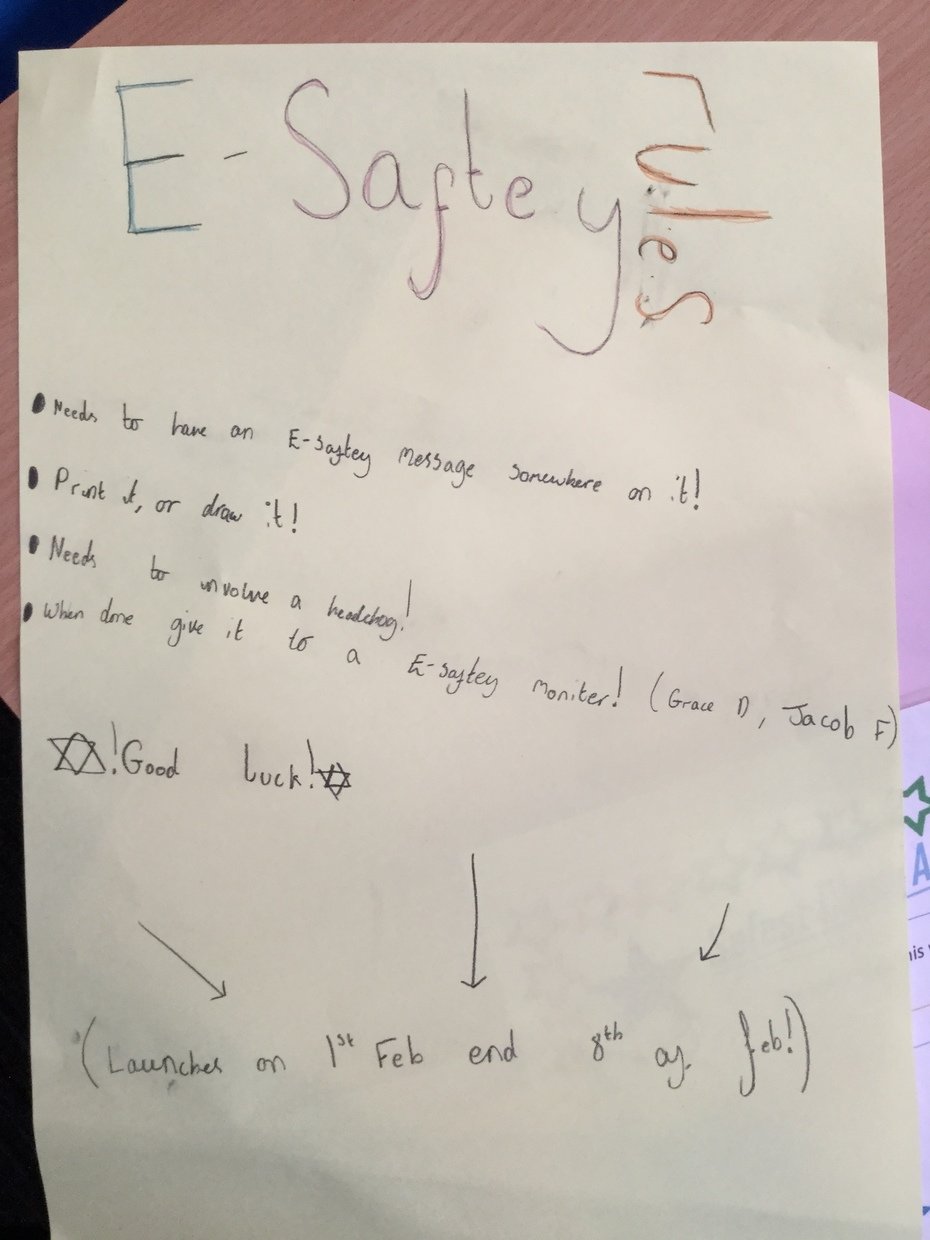 E-Saftey rules
• Needs to have an E-saftey message somewhere on it!
• Print it, or draw it!
• Needs to involve a headchog!
• When done give it to a E-saftey moniter! (Grace D, Jacob F)
!Good luck!
(Launches on 1st Feb end 8th of feb!)
A
his